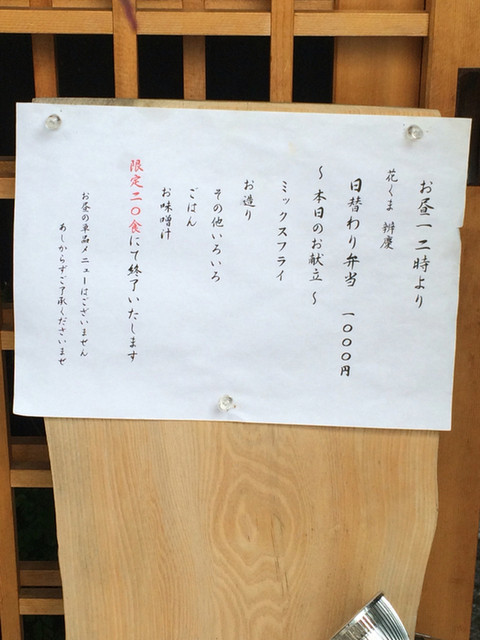 お昼一二時より
花くま 辨慶
日替わり弁当 一〇〇〇円
~本日のお献立~
ミックスフライ
お造り
その他いろいろ
ごはん
お味噌汁
限定二〇食にて終了いたします
お昼の単品メニューはございません
あしからずご了承くださいませ